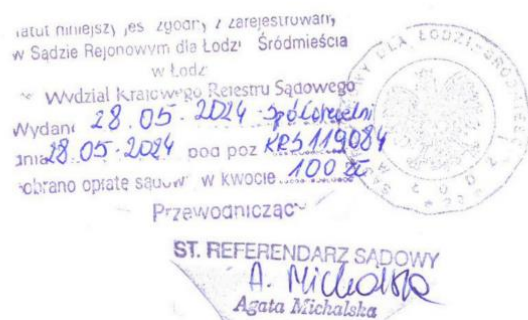 statut niniejszy jest zgodny z zarejestrowanym
w Sądzie Rejonowym dla Łodzi Śródmieścia
w Łodzi
Wydział Krajowego Rejestru Sądowego
Wydano 28.05.2024 Spółdzielni
dnia 28.05.2024 pod poz KRS 119084
pobrano opłatę sądow w kwocie 100 zł
Przewodnicząc
ST. REFERENDARZ SĄDOWY
A. Michalska
Agata Michalska
DLA ŁODZI-ŚRÓD